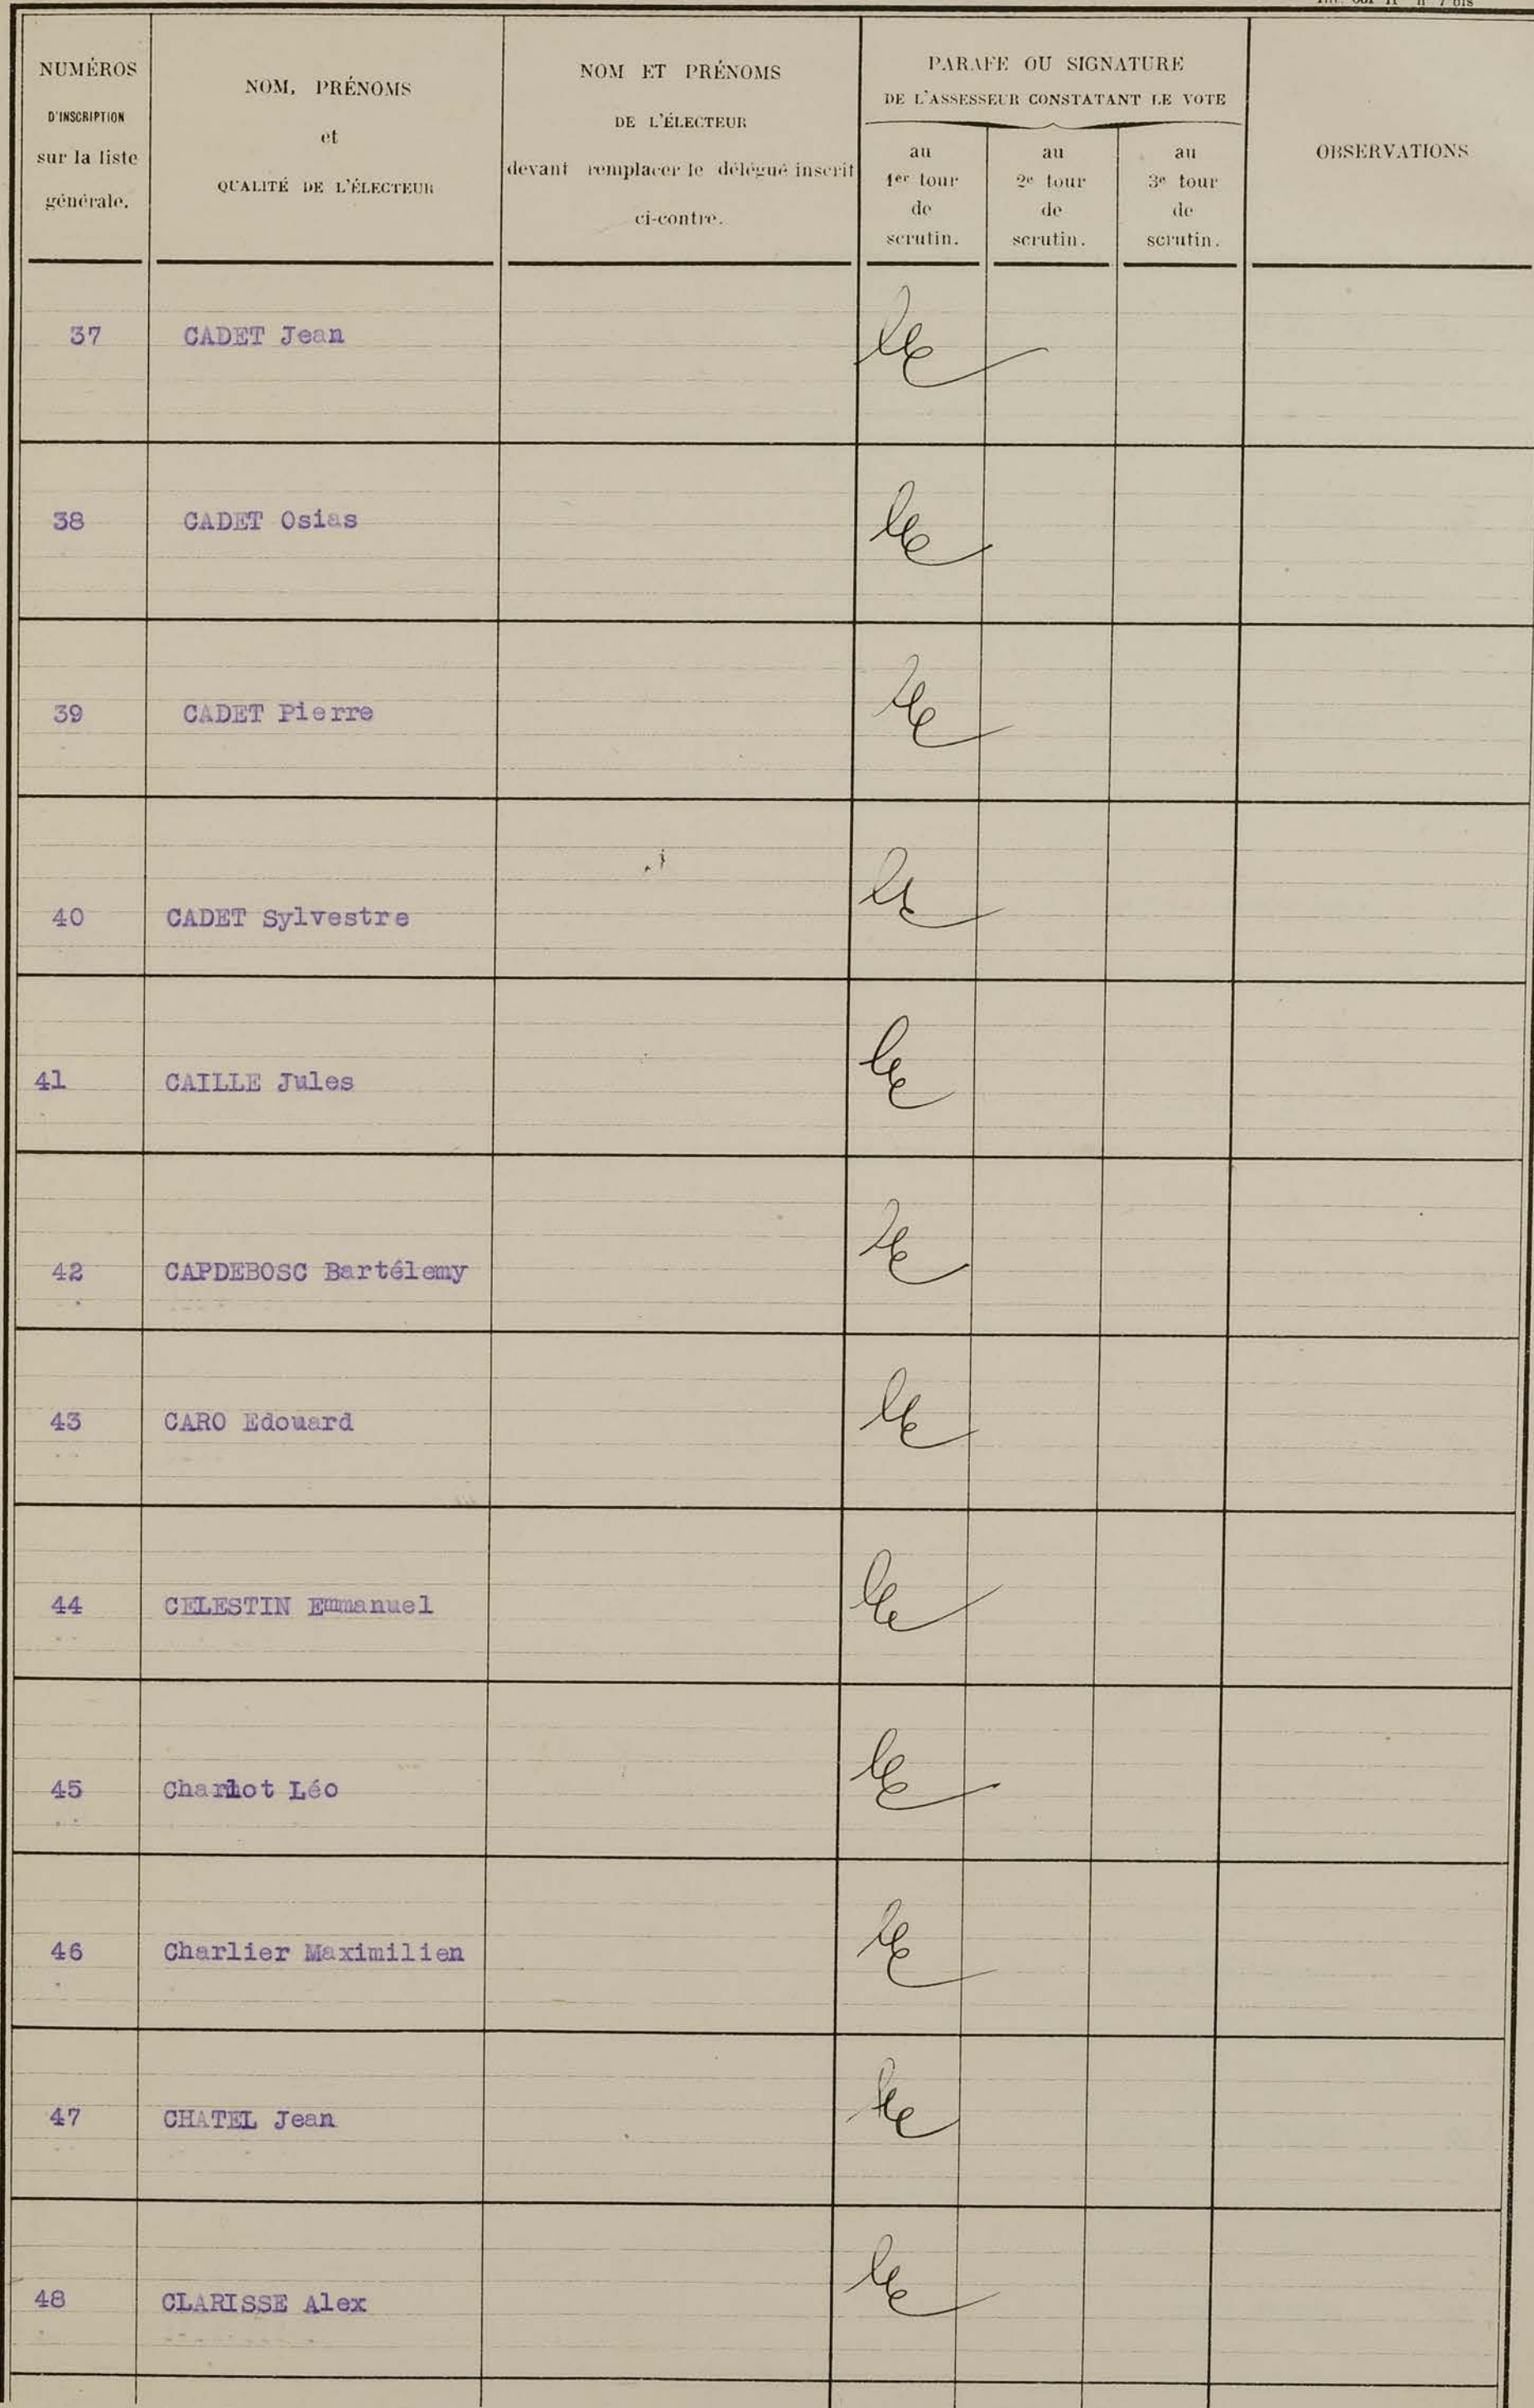 NUMÉROS
D'INSCRIPTION
sur la liste
générale.
NOM, PRÉNOMS
et
QUALITÉ DE L'ÉLECTEUR
NOM ET PRÉNOMS
DE L'ÉLECTEUR
devant remplacer le délégué inscrit
ci-contre.
PARAFE OU SIGNATURE
DE L'ASSESSEUR CONSTATANT LE VOTE
au
1er tour
de
scrutin.
au
2e tour
de
scrutin.
au
3e tour
de
scrutin.
OBSERVATIONS
37 CADET Jean
38 CADET Osias
39 CADET Pierre
40 CADET Sylvestre
41 CAILLE Jules
42 CAPDEBOSC Bartélemy
43 CARO Edouard
44 CELESTIN Emmanuel
45 Léo
46 Charlier Maximilien
47 CHATEL Jean
48 CLARISSE Alex